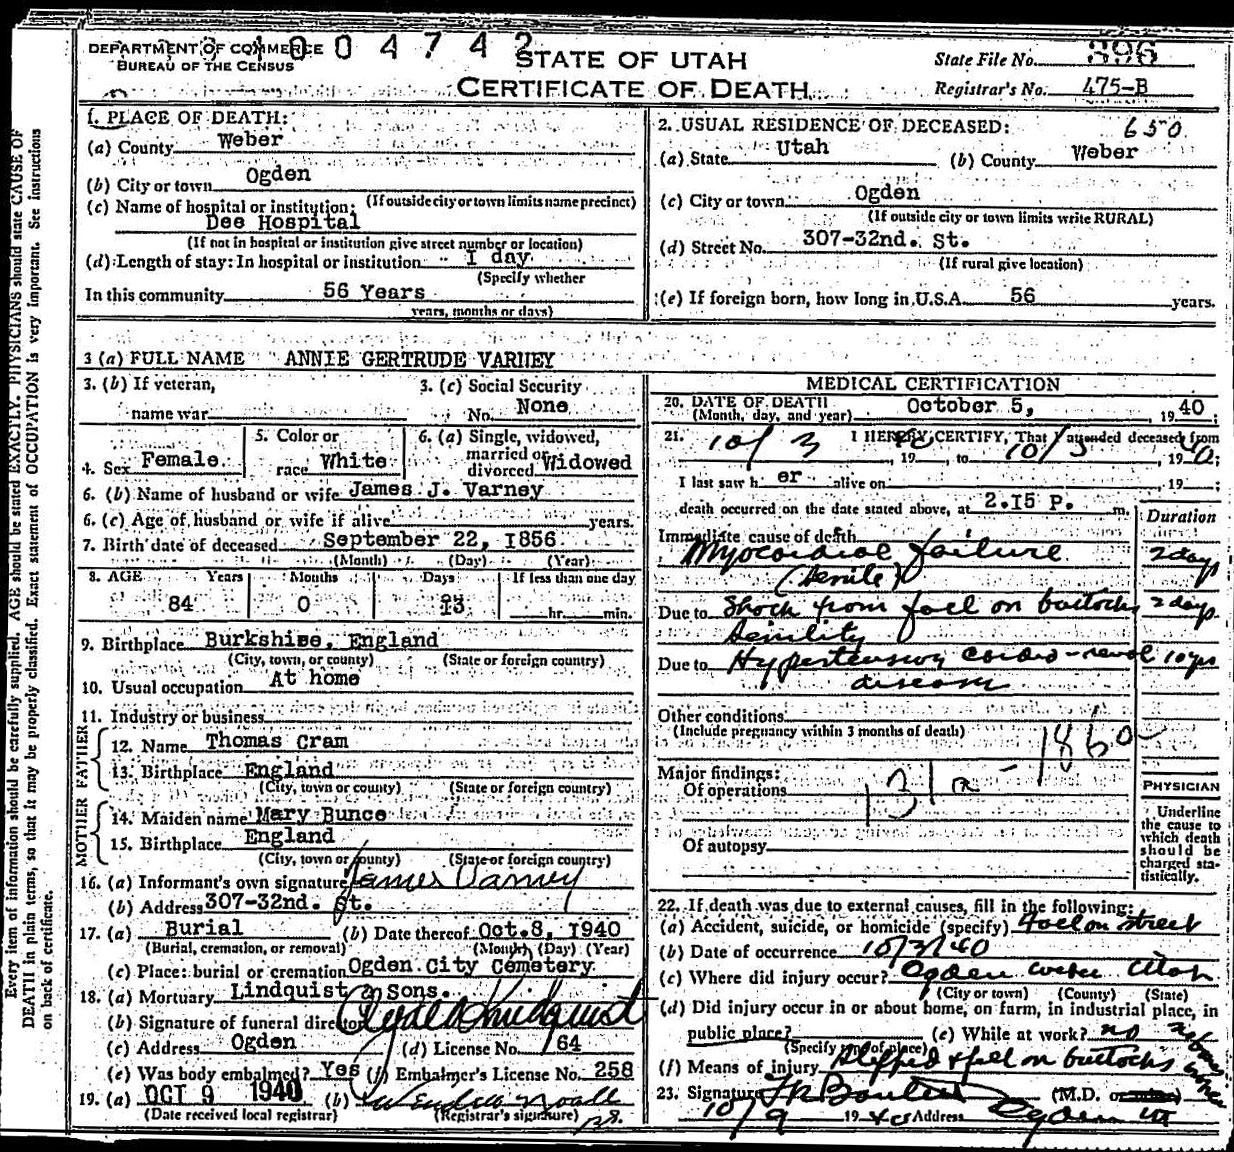 DEPARTMENT OF COMMERCE
BUREAU OF THE CENSUS
1004742
STATE OF UTAH
CERTIFICATE OF DEATH
State File No. 396
Registrar's No. 475-B
1. PLACE OF DEATH:
(a) County Weber
(b) City or town Ogden
(If outside city or town limits name precinct)
(c) Name of hospital or institution:
Dee Hospital
(If not in hospital or institution give street number or location)
(d) Length of stay: In hospital or institution I day
(Specify whether
In this community 56 Years
years, months or days)
2. USUAL RESIDENCE OF DECEASED: 650
(a) State Utah (b) County Weber
(c) City or town Ogden
(If outside city or town limits write RURAL)
(d) Street No. 307-32nd. St.
(If rural give location)
(e) If foreign born, how long in U.S.A. 56 years.
3 (a) FULL NAME ANNIE GERTRUDE VARNEY
3. (b) If veteran,
name war
3. (c) Social Security
No. None
4. Sex Female
5. Color or
race White
6. (a) Single, widowed,
married or
divorced Widowed
6. (b) Name of husband or wife James J. Varney
6. (c) Age of husband or wife if alive years.
7. Birth date of deceased September 22, I856
(Month) (Day) (Year)
8. AGE Years Months Days If less than one day
84 0 13 hr. min.
9. Birthplace Burkshise, England
(City, town, or county) (State or foreign country)
10. Usual occupation At home
11. Industry or business
FATHER
12. Name Thomas Cram
13. Birthplace England
(City, town or county) (State or foreign country)
MOTHER
14. Maiden name Mary Bunce
15. Birthplace England
(City, town or county) (State or foreign country)
16. (a) Informant's own signature James Varney
(b) Address 307-32nd. St.
17. (a) Burial (b) Date thereof Oct.8, I940
(Burial, cremation, or removal) (Month) (Day) (Year)
(c) Place: burial or cremation Ogden City Cemetery
18. (a) Mortuary Lindquist & Sons.
(b) Signature of funeral director Clyde Lindquist
(c) Address Ogden (d) License No. 164
(e) Was body embalmed? Yes (f) Embalmer's License No. 258
19. (a) OCT 9 1940 (b)
(Date received local registrar) (Registrar's signature)
MEDICAL CERTIFICATION
20. DATE OF DEATH
(Month, day, and year) October 5, 1940;
21. I HEREBY CERTIFY, That I attended deceased from
10/3, 1940, to 10/5, 1940;
I last saw h er alive on , 19 ;
death occurred on the date stated above, at 2.I5 P. m.
Duration
Immediate cause of death
Myocardial failure 2 days
(senile)
Due to Shock from fall on buttocks 2 days
Senility
Due to Hypertension cardio-renal 10 yrs
disease
Other conditions
(Include pregnancy within 3 months of death)
186 0
Major findings:
Of operations
131a
Of autopsy
PHYSICIAN
Underline
the cause to
which death
should be
charged sta-
tistically.
22. If death was due to external causes, fill in the following:
(a) Accident, suicide, or homicide (specify) Fall on street
(b) Date of occurrence 10/3/40
(c) Where did injury occur? Ogden Weber Utah
(City or town) (County) (State)
(d) Did injury occur in or about home, on farm, in industrial place, in
public place? (e) While at work? no
(Specify type of place)
(f) Means of injury Slipped & fell on buttocks
23. Signature (M.D. or other)
10/9 1940 Address Ogden Ut
Every item of information should be carefully supplied. AGE should be stated EXACTLY. PHYSICIANS should state CAUSE OF
DEATH in plain terms, so that it may be properly classified. Exact statement of OCCUPATION is very important. See instructions
on back of certificate.